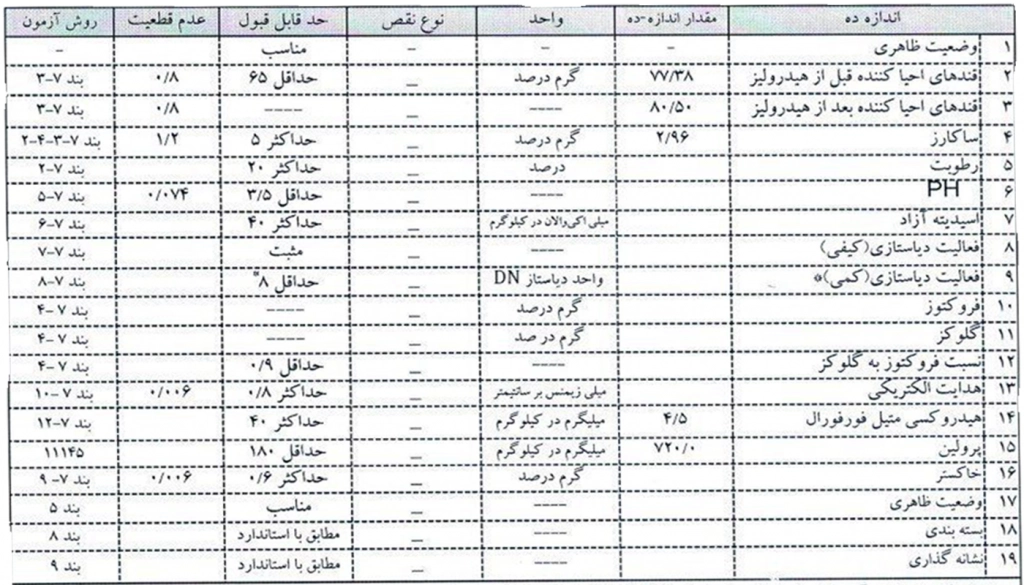 اندازه ده | مقدار اندازه-ده | واحد | نوع نقص | حد قابل قبول | عدم قطعیت | روش آزمون
۱ | وضعیت ظاهری | – | – | – | مناسب | | –
۲ | قندهای احیا کننده قبل از هیدرولیز | ۷۷/۳۸ | گرم درصد | – | حداقل ۶۵ | ۰/۸ | بند ۷-۳
۳ | قندهای احیا کننده بعد از هیدرولیز | ۸۰/۵۰ | ---- | – | ---- | ۰/۸ | بند ۷-۳
۴ | ساکارز | ۲/۹۶ | گرم درصد | – | حداکثر ۵ | ۱/۲ | بند ۷-۳-۴-۲
۵ | رطوبت | | درصد | – | حداکثر ۲۰ | | بند ۷-۲
۶ | PH | | ---- | – | حداقل ۳/۵ | ۰/۰۷۴ | بند ۷-۵
۷ | اسیدیته آزاد | | میلی اکی والان در کیلوگرم | – | حداکثر ۴۰ | | بند ۷-۶
۸ | فعالیت دیاستازی(کیفی) | | ---- | – | مثبت | | بند ۷-۷
۹ | فعالیت دیاستازی(کمی)* | | واحد دیاستاز DN | – | حداقل ۸* | | بند ۷-۸
۱۰ | فروکتوز | | گرم درصد | – | ---- | | بند ۷-۴
۱۱ | گلوکز | | گرم در صد | – | ---- | | بند ۷-۴
۱۲ | نسبت فروکتوز به گلوکز | | ---- | – | حداقل ۰/۹ | | بند ۷-۴
۱۳ | هدایت الکتریکی | | میلی زیمنس بر سانتیمتر | – | حداکثر ۰/۸ | ۰/۰۰۶ | بند ۷-۱۰
۱۴ | هیدروکسی متیل فورفورال | ۴/۵ | میلیگرم در کیلوگرم | – | حداکثر ۴۰ | | بند ۷-۱۲
۱۵ | پرولین | ۷۲۰/۰ | میلیگرم در کیلوگرم | – | حداقل ۱۸۰ | | ۱۱۱۴۵
۱۶ | خاکستر | | گرم درصد | – | حداکثر ۰/۶ | ۰/۰۰۶ | بند ۷-۹
۱۷ | وضعیت ظاهری | | ---- | – | مناسب | | بند ۵
۱۸ | بسته بندی | | ---- | – | مطابق با استاندارد | | بند ۸
۱۹ | نشانه گذاری | | ---- | – | مطابق با استاندارد | | بند ۹